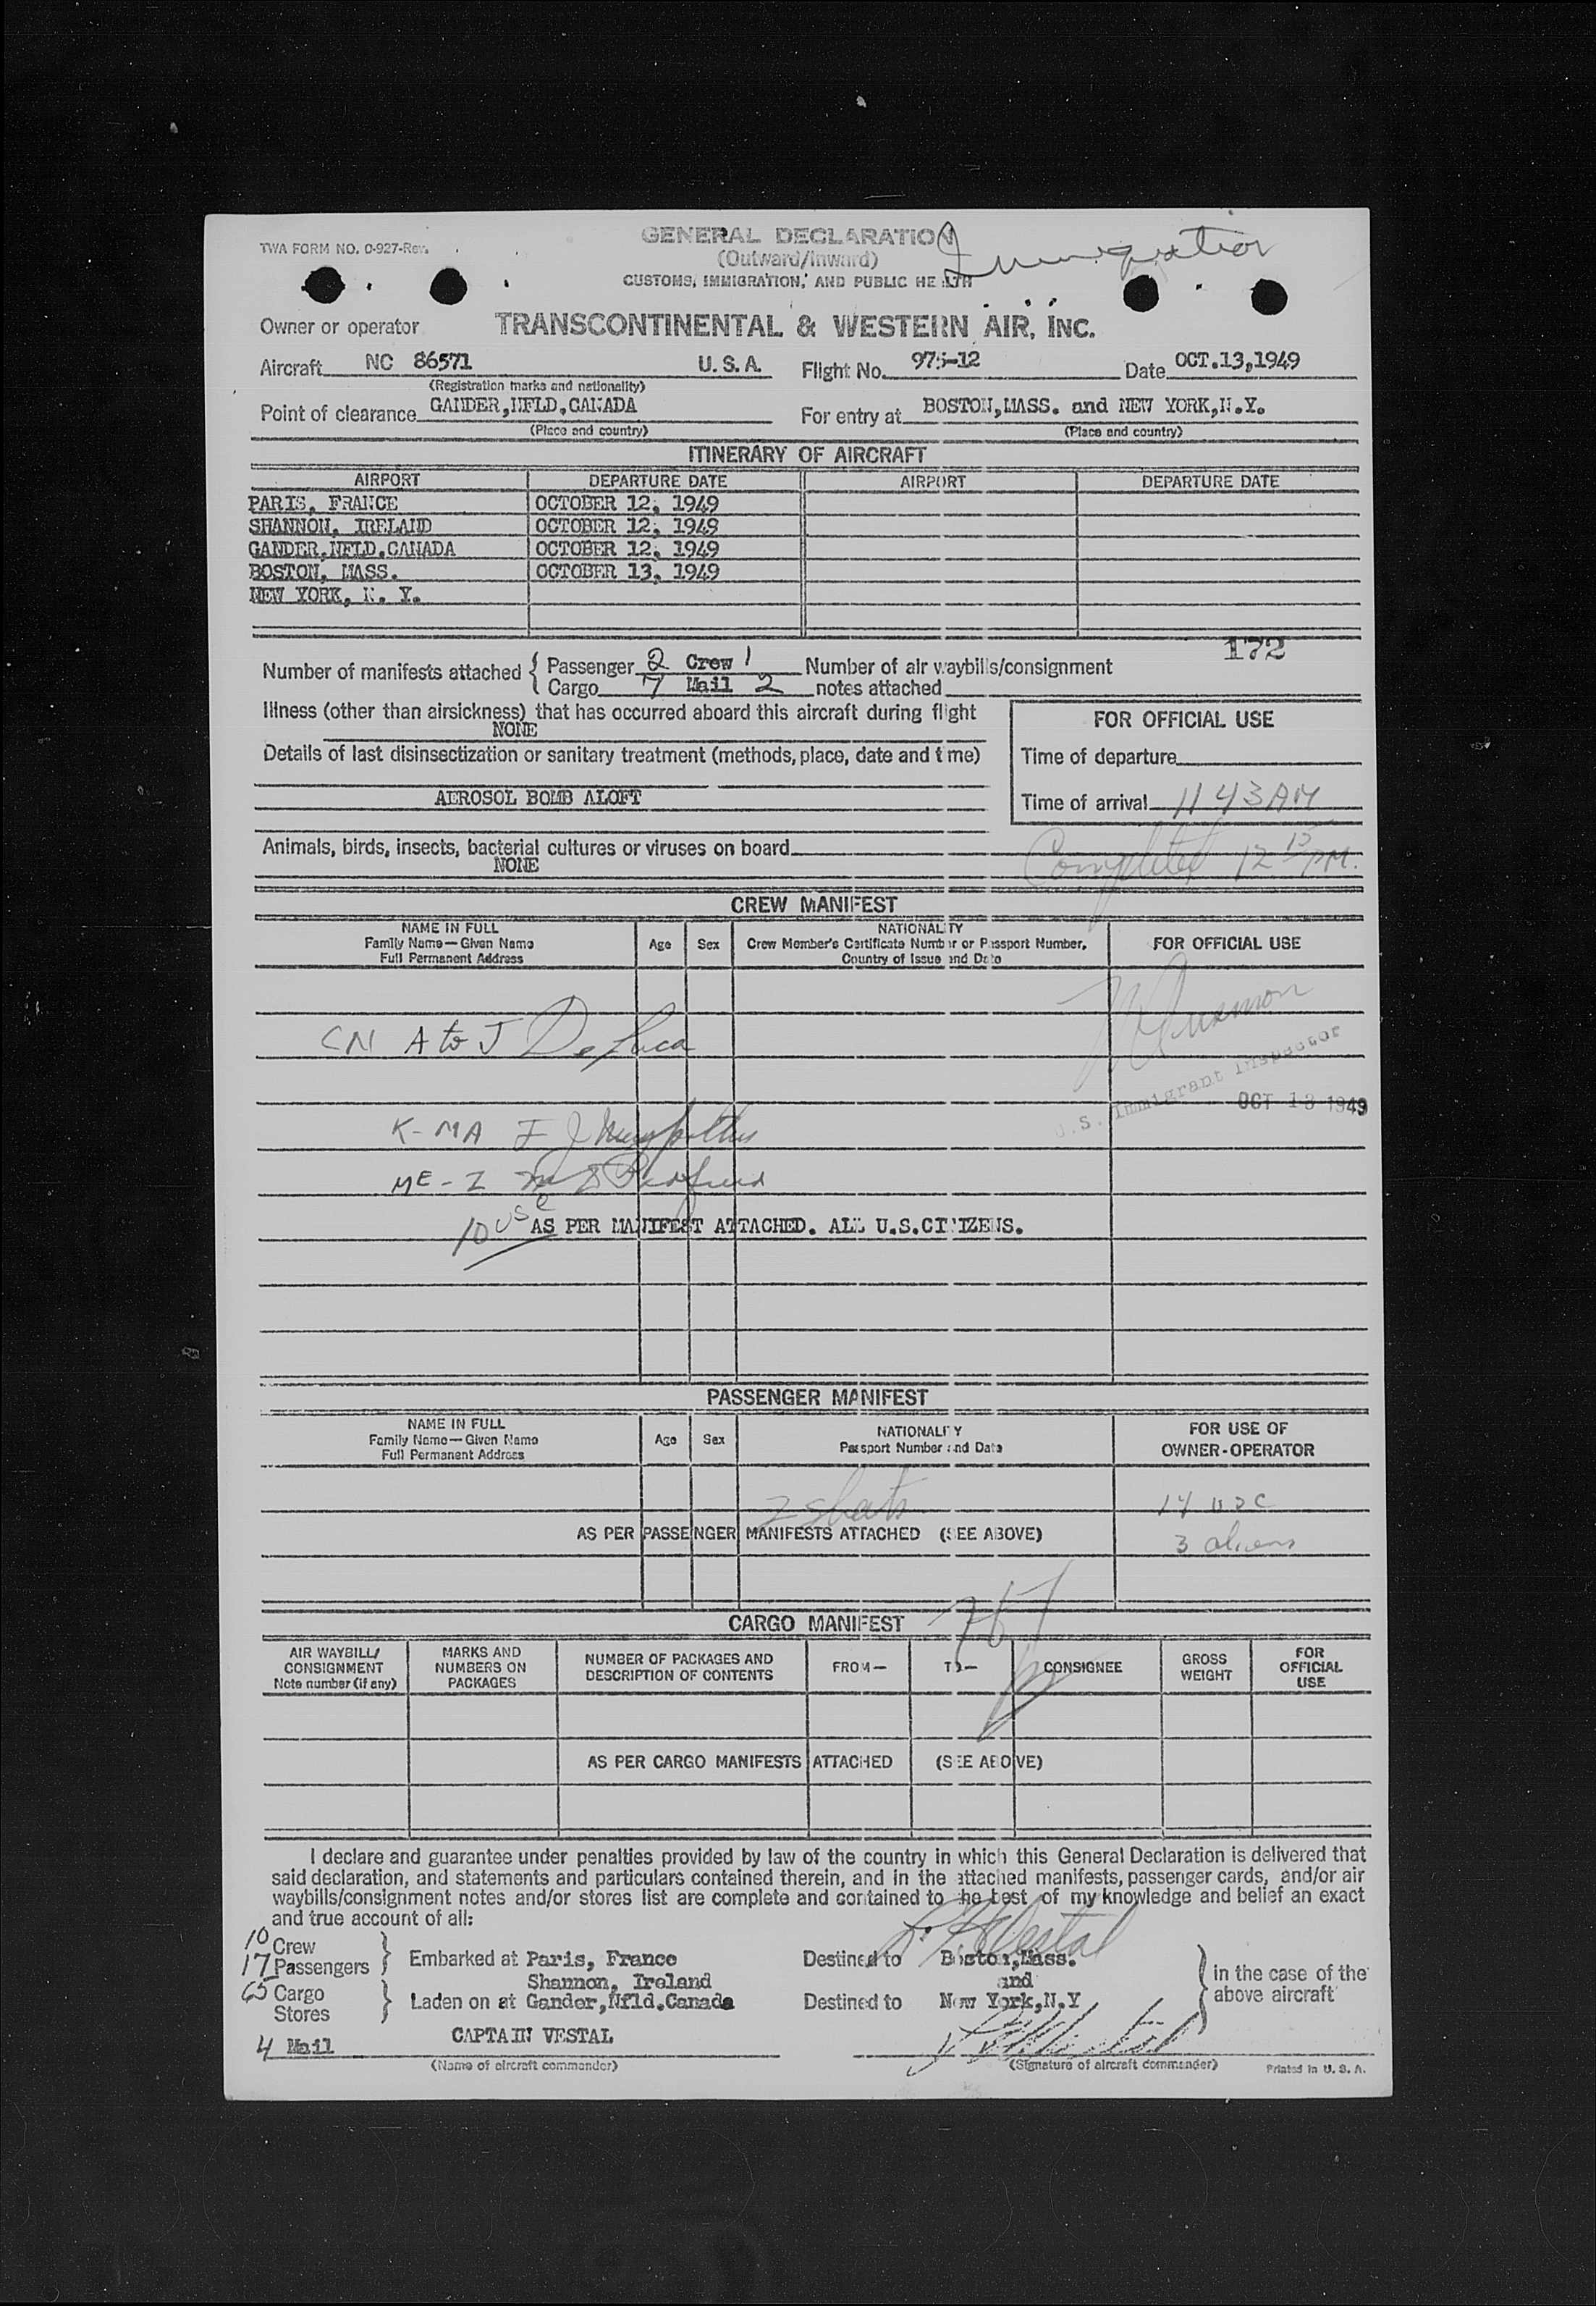 TWA FORM NO. O-927-Rev.
GENERAL DECLARATION
(Outward/Inward)
CUSTOMS, IMMIGRATION, AND PUBLIC HEALTH
Immigration
Owner or operator TRANSCONTINENTAL & WESTERN AIR, INC.
Aircraft NC 86571 U. S. A. Flight No. 975-12 Date OCT.13,1949
(Registration marks and nationality)
Point of clearance GANDER,NFLD,CANADA For entry at BOSTON,MASS. and NEW YORK,N.Y.
(Place and country) (Place and country)
ITINERARY OF AIRCRAFT
AIRPORT DEPARTURE DATE AIRPORT DEPARTURE DATE
PARIS, FRANCE OCTOBER 12, 1949
SHANNON, IRELAND OCTOBER 12, 1949
GANDER,NFLD.CANADA OCTOBER 12, 1949
BOSTON, MASS. OCTOBER 13, 1949
NEW YORK, N. Y.
172
Number of manifests attached { Passenger 2 Crew 1 Number of air waybills/consignment
Cargo 7 Mail 2 notes attached
Illness (other than airsickness) that has occurred aboard this aircraft during flight
NONE
FOR OFFICIAL USE
Details of last disinsectization or sanitary treatment (methods, place, date and time)
Time of departure
AEROSOL BOMB ALOFT
Time of arrival 11 43 AM
Animals, birds, insects, bacterial cultures or viruses on board
NONE
Completed 12 15 PM.
CREW MANIFEST
NAME IN FULL
Family Name—Given Name
Full Permanent Address
Age Sex
NATIONALITY
Crew Member's Certificate Number or Passport Number,
Country of Issue and Date
FOR OFFICIAL USE
CN A to J De Luca
U.S. Immigrant Inspector
OCT 13 1949
K - MA F J
ME - Z
10 USC
AS PER MANIFEST ATTACHED. ALL U.S.CITIZENS.
PASSENGER MANIFEST
NAME IN FULL
Family Name—Given Name
Full Permanent Address
Age Sex
NATIONALITY
Passport Number and Date
FOR USE OF
OWNER-OPERATOR
2 sheets 14 USC
AS PER PASSENGER MANIFESTS ATTACHED (SEE ABOVE)
3 aliens
CARGO MANIFEST
AIR WAYBILL/
CONSIGNMENT
Note number (if any)
MARKS AND
NUMBERS ON
PACKAGES
NUMBER OF PACKAGES AND
DESCRIPTION OF CONTENTS
FROM—
TO—
CONSIGNEE
GROSS
WEIGHT
FOR
OFFICIAL
USE
AS PER CARGO MANIFESTS ATTACHED (SEE ABOVE)
I declare and guarantee under penalties provided by law of the country in which this General Declaration is delivered that
said declaration, and statements and particulars contained therein, and in the attached manifests, passenger cards, and/or air
waybills/consignment notes and/or stores list are complete and contained to the best of my knowledge and belief an exact
and true account of all:
10 Crew
17 Passengers } Embarked at Paris, France Destined to Boston,Mass.
Shannon, Ireland and
65 Cargo
Stores } Laden on at Gander,Nfld.Canada Destined to New York,N.Y
} in the case of the
above aircraft
4 Mail CAPTAIN VESTAL
(Name of aircraft commander) (Signature of aircraft commander) Printed in U. S. A.